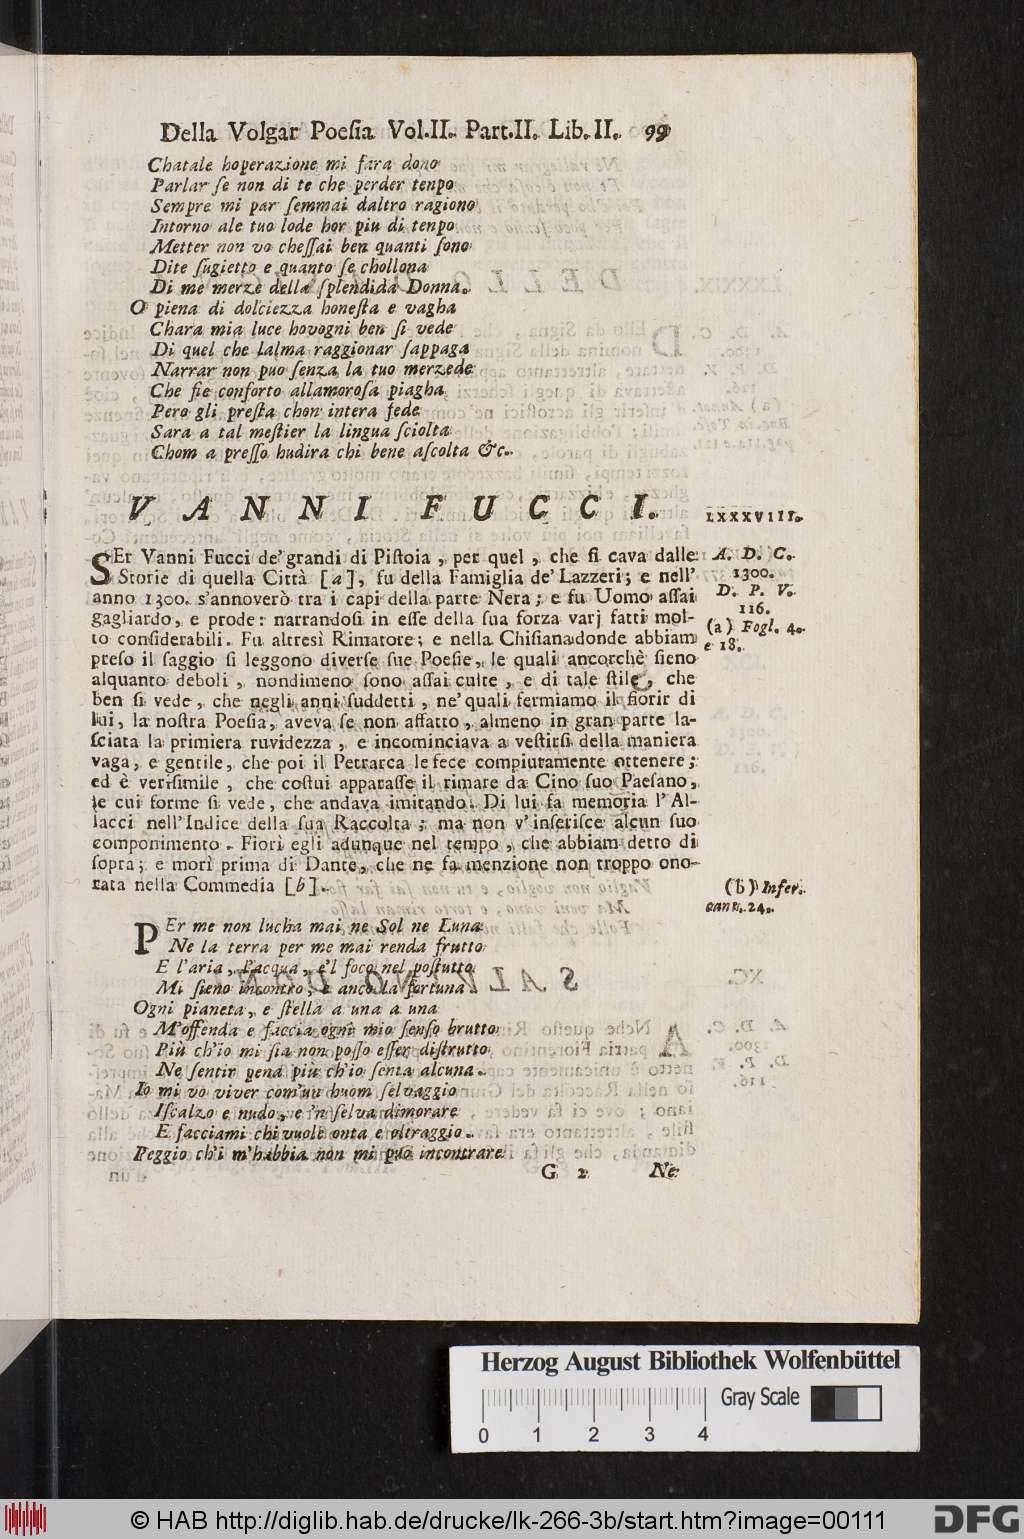 Della Volgar Poesia Vol.II. Part.II. Lib.II. 99
Chatale hoperazione mi fara dono
Parlar se non di te che perder tenpo
Sempre mi par semmai daltro ragiono
Intorno ale tuo lode hor piu di tenpo
Metter non vo chessai ben quanti sono
Dite sugietto e quanto se chollona
Di me merzè della splendida Donna.
O piena di dolciezza honesta e vagha
Chara mia luce hovogni ben si vede
Di quel che lalma raggionar sappaga
Narrar non puo senza la tuo merzede
Che fie conforto allamorosa piagha
Pero gli presta chon intera fede
Sara a tal mestier la lingua sciolta
Chom a presso hudira chi bene ascolta &c.
VANNI FUCCI.
LXXXVIII.
SEr Vanni Fucci de' grandi di Pistoia, per quel, che si cava dalle
Storie di quella Città [a], fu della Famiglia de' Lazzeri; e nell'
anno 1300. s'annoverò tra i capi della parte Nera; e fu Uomo assai
gagliardo, e prode: narrandosi in esse della sua forza varj fatti mol-
to considerabili. Fu altresì Rimatore; e nella Chisiana donde abbiam
preso il saggio si leggono diverse sue Poesie, le quali ancorchè sieno
alquanto deboli, nondimeno sono assai culte, e di tale stile, che
ben si vede, che negli anni suddetti, ne' quali fermiamo il fiorir di
lui, la nostra Poesia, aveva se non affatto, almeno in gran parte la-
sciata la primiera ruvidezza, e incominciava a vestirsi della maniera
vaga, e gentile, che poi il Petrarca le fece compiutamente ottenere;
ed è verisimile, che costui apparasse il rimare da Cino suo Paesano,
le cui forme si vede, che andava imitando. Di lui fa memoria l'Al-
lacci nell'Indice della sua Raccolta; ma non v'inserisce alcun suo
componimento. Fiorì egli adunque nel tempo, che abbiam detto di
sopra; e morì prima di Dante, che ne fa menzione non troppo ono-
rata nella Commedia [b].
A. D. C.
1300.
D. P. V.
116.
(a) Fogl. 4.
e 18.
(b) Infer.
cant. 24.
PEr me non lucha mai ne Sol ne Luna
Ne la terra per me mai renda frutto
E l'aria, l'acqua, e'l foco nel postutto
Mi sieno incontro; e anco la fortuna
Ogni pianeta, e stella a una a una
M'offenda e faccia ogni mio senso brutto
Più ch'io mi sia non posso esser distrutto
Ne sentir pena più ch'io senta alcuna.
Io mi vo viver com'un huom selvaggio
Iscalzo e nudo, e'n selva dimorare
E facciami chi vuole onta e oltraggio.
Peggio ch'i m'habbia non mi può incontrare
G 2 Ne
Herzog August Bibliothek Wolfenbüttel
Gray Scale
0 1 2 3 4
© HAB http://diglib.hab.de/drucke/lk-266-3b/start.htm?image=00111
DFG